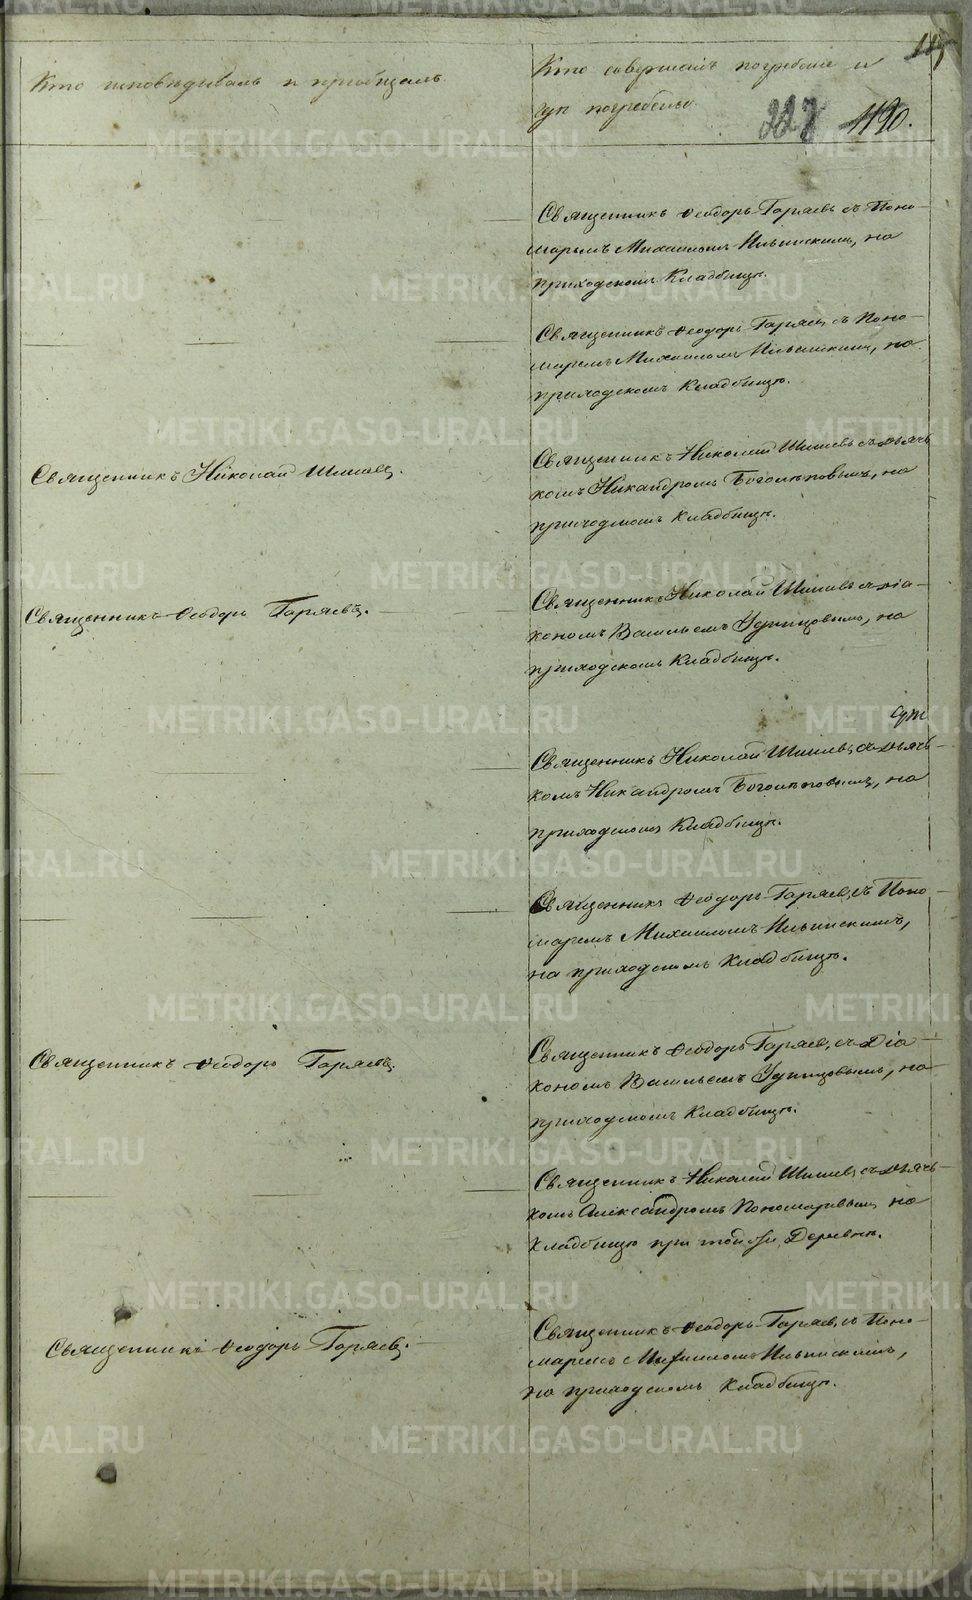 Кто исповѣдывалъ и пріобщалъ.
Кто совершалъ погребеніе и
гдѣ погребены.
227 190.
Священникъ Ѳеодоръ Гаряевъ съ Поно-
маремъ Михаиломъ Ильинскимъ, на
приходскомъ Кладбищѣ.
Священникъ Ѳеодоръ Гаряевъ, съ Поно-
маремъ Михаиломъ Ильинскимъ, на
приходскомъ Кладбищѣ.
Священникъ Николай Шишевъ.
Священникъ Николай Шишевъ съ дьяч-
комъ Никандромъ Боголѣповымъ, на
приходскомъ Кладбищѣ.
Священникъ Ѳеодоръ Гаряевъ.
Священникъ Николай Шишевъ съ діа-
кономъ Васильемъ Удинцовымъ, на
приходскомъ Кладбищѣ.
Священникъ Николай Шишевъ, съ дьяч-
комъ Никандромъ Боголѣповымъ, на
приходскомъ Кладбищѣ.
Священникъ Ѳеодоръ Гаряевъ, съ Поно-
маремъ Михаиломъ Ильинскимъ,
на приходскомъ Кладбищѣ.
Священникъ Ѳеодоръ Гаряевъ.
Священникъ Ѳеодоръ Гаряевъ, съ Діа-
кономъ Васильемъ Удинцовымъ, на
приходскомъ Кладбищѣ.
Священникъ Николай Шишевъ, съ дьяч-
комъ Александромъ Пономаревымъ, на
Кладбищѣ при той же Деревнѣ.
Священникъ Ѳеодоръ Гаряевъ.
Священникъ Ѳеодоръ Гаряевъ, съ Поно-
маремъ Михаиломъ Ильинскимъ,
на приходскомъ Кладбищѣ.
METRIKI.GASO-URAL.RU